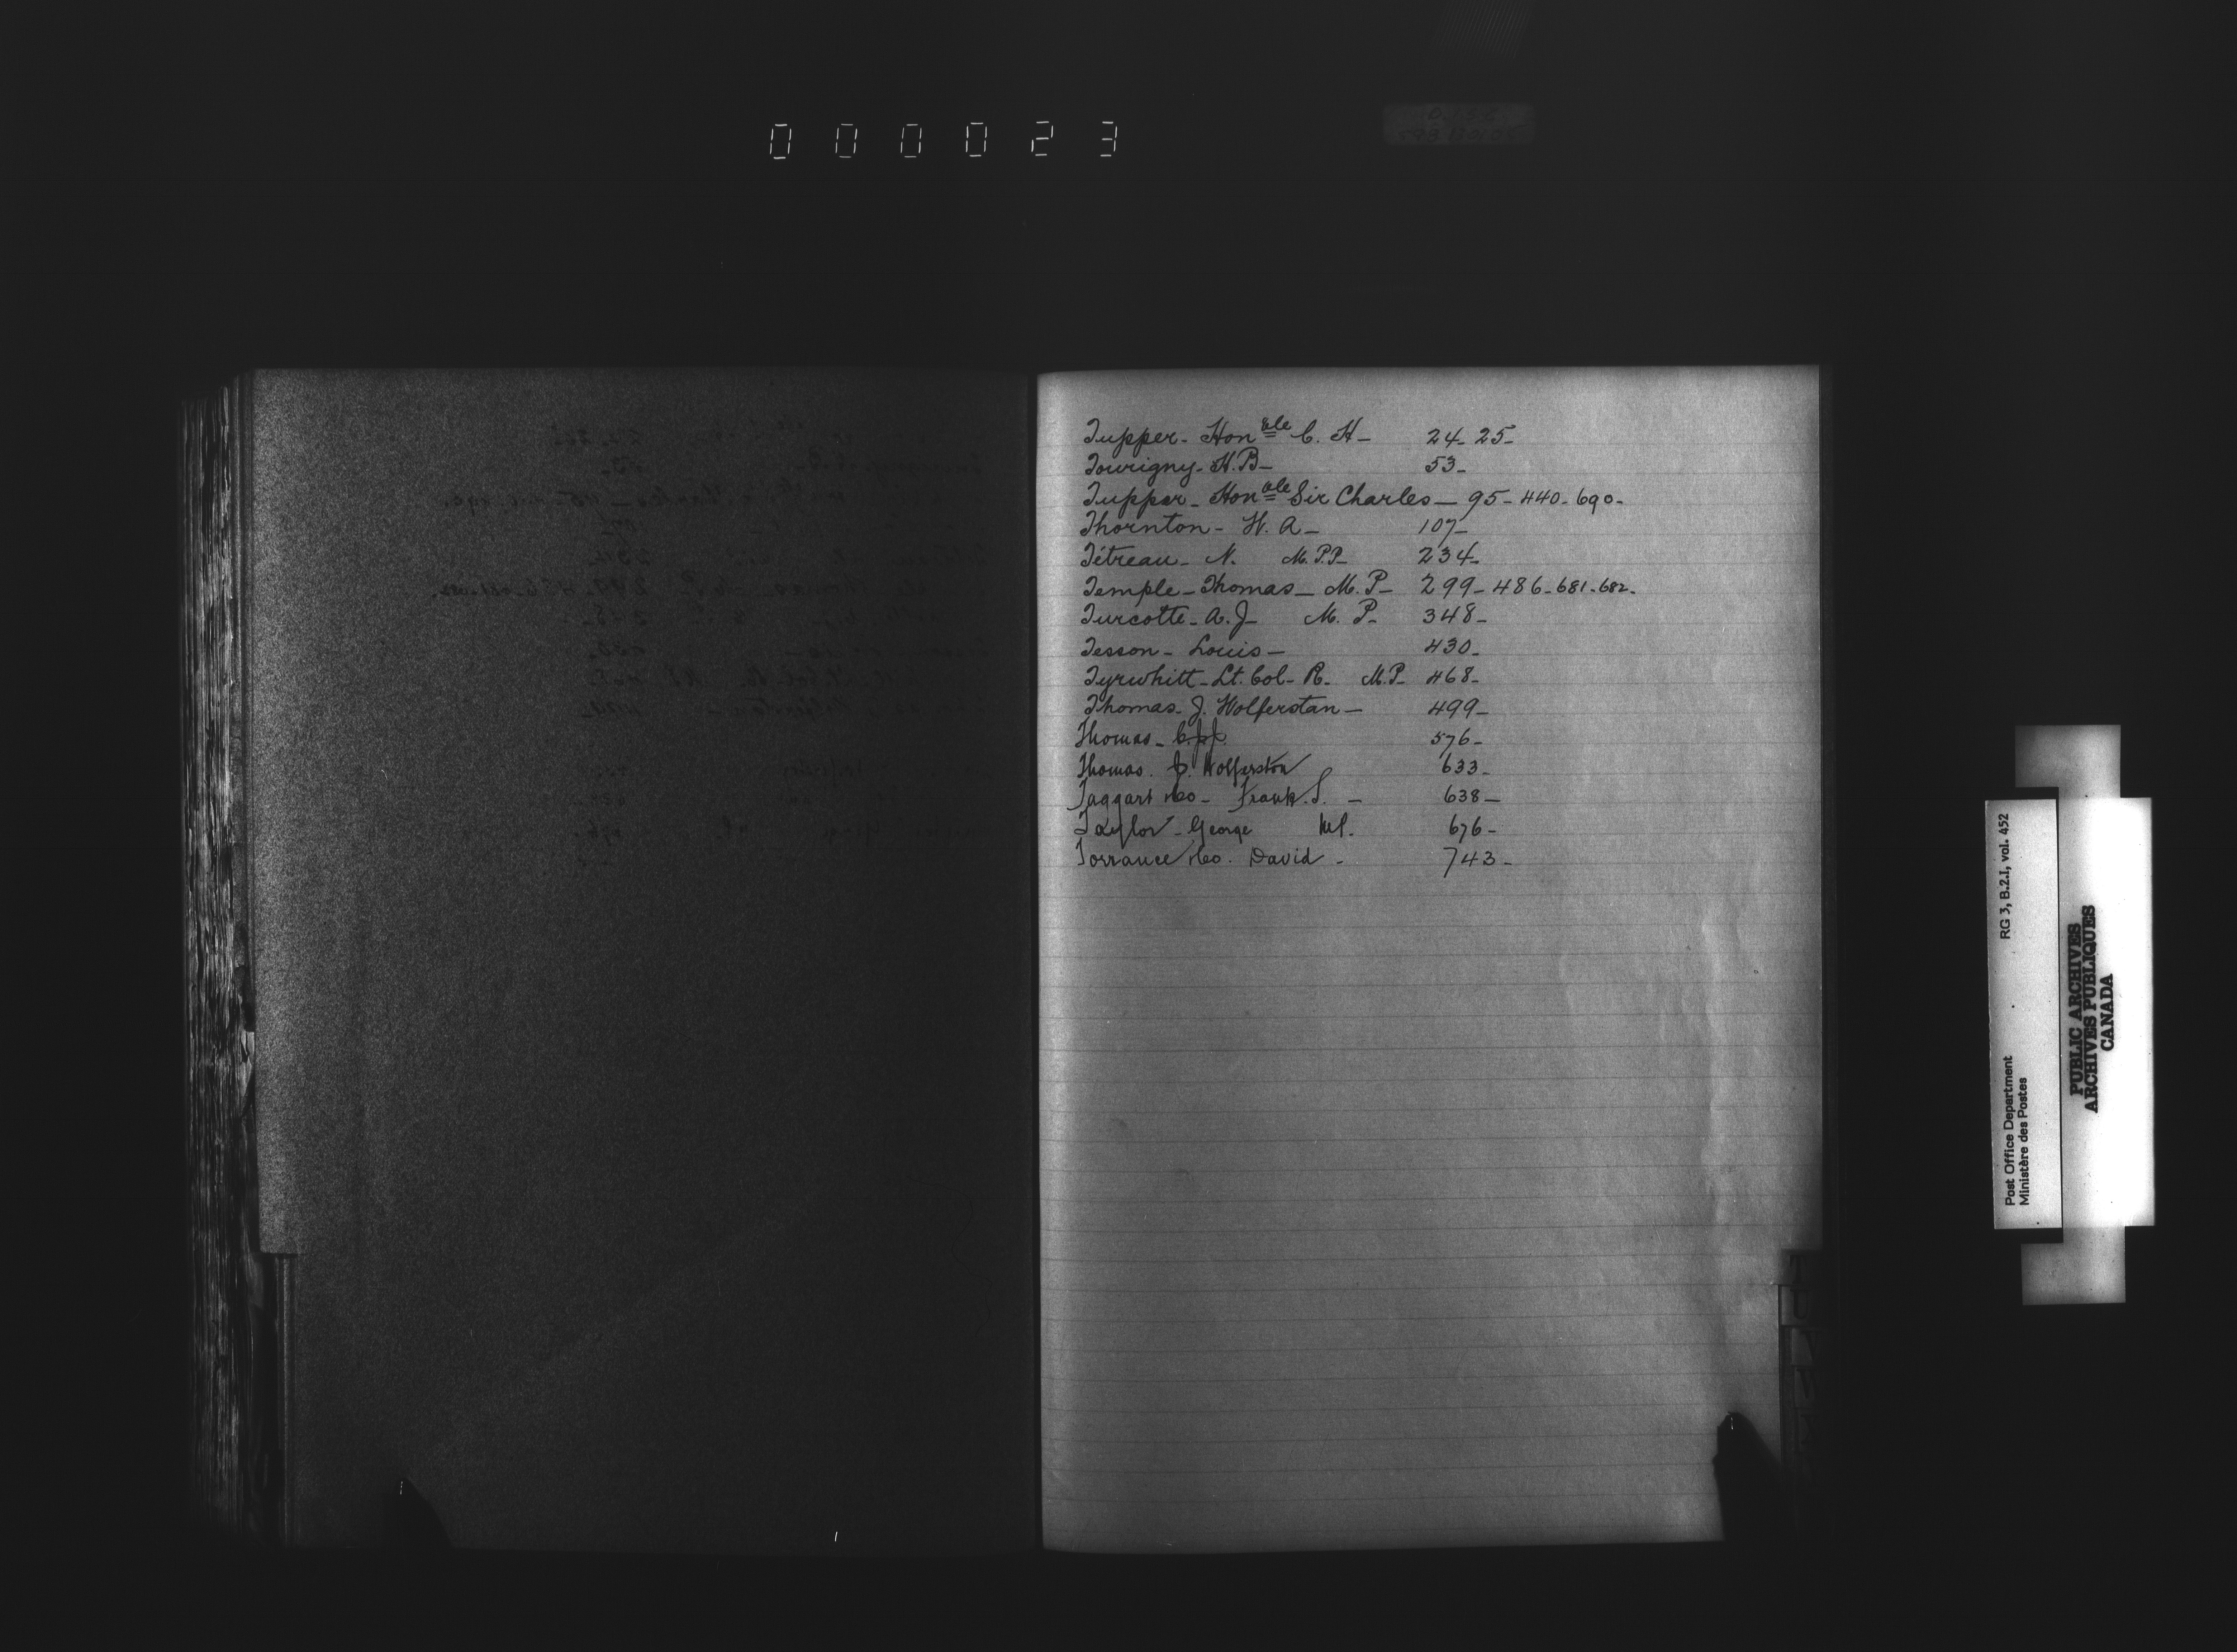 000023
Tupper - Honble C. H - 24 - 25 -
Tourigny - H. B - 53 -
Tupper - Honble Sir Charles - 95 - 440 - 690 -
Thornton - W. A - 107 -
Tétreau - N. M.P.P. 234 -
Temple - Thomas - M. P - 299 - 486 - 681 - 682 -
Turcotte - A. J - M. P - 348 -
Tesson - Louis - 430 -
Tyrwhitt - Lt. Col - R - M.P - 468 -
Thomas - J. Wolferstan - 499 -
Thomas - 576 -
Thomas. J. Wolferston 633 -
Taggart Frank. S. - 638 -
Taylor - George M.P. 676 -
Torrance David - 743 -
T
U
V
W
RG 3, B.2.I, vol. 452
Post Office Department
Ministère des Postes
PUBLIC ARCHIVES
ARCHIVES PUBLIQUES
CANADA